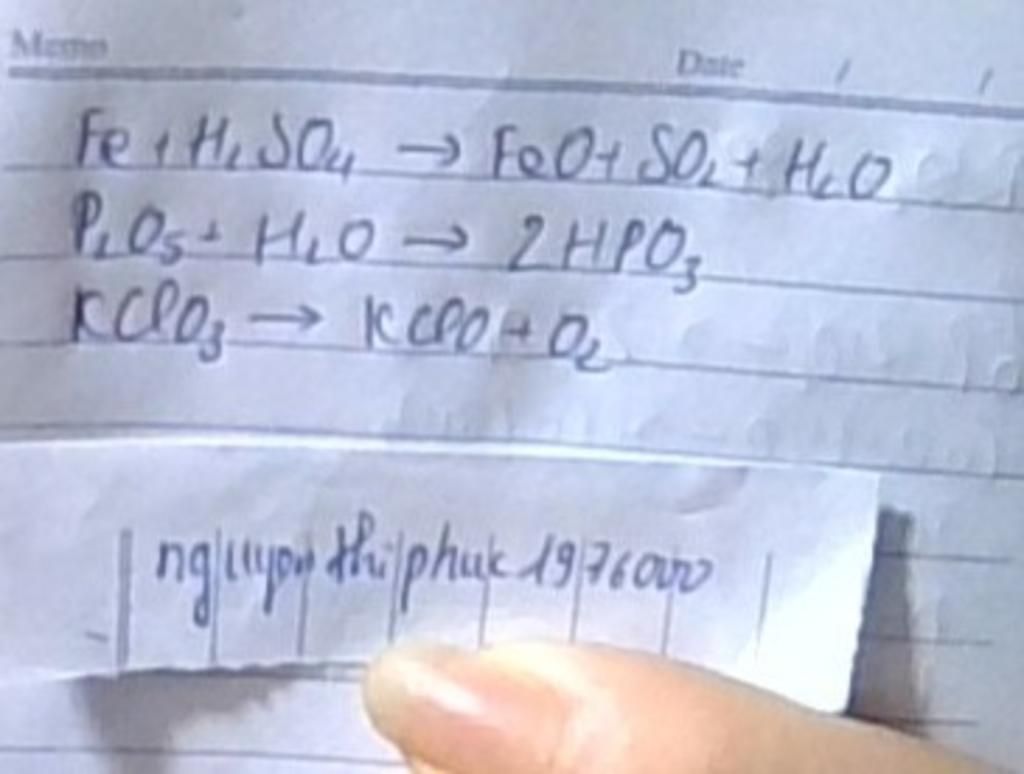 Memo Date / /
Fe + H₂SO₄ → FeO + SO₂ + H₂O
P₂O₅ + H₂O → 2HPO₃
KClO₃ → KClO + O₂
nguyen thi phuc 1976000